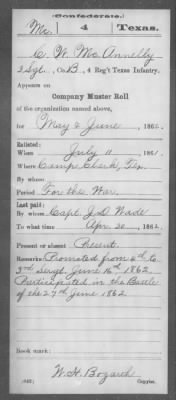 (Confederate.)
Mc. 4 Texas.
C. W. McAnnelly
2 Sgt., Co. B, 4 Reg't Texas Infantry.
Appears on
Company Muster Roll
of the organization named above,
for May & June, 1862.
Enlisted:
When July 11, 1861.
Where Camp Clark, Tex.
By whom
Period For the War.
Last paid:
By whom Capt. J. D. Wade
To what time Apr. 30, 1862.
Present or absent Present.
Remarks: Promoted from 4th to
3rd Sergt June 16th 1862
Participated in the Battle
of the 27th June 1862
Book mark:
W. H. Bozarth
(642) Copyist.